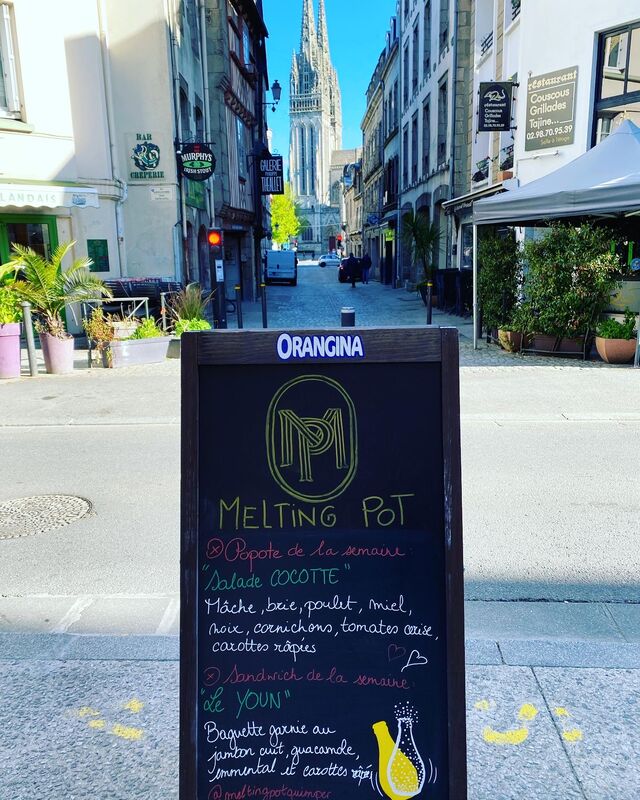 BAR
CRÊPERIE
MURPHY'S
IRISH STOUT
GALERIE
THEILLET
LANDAIS
restaurant
Couscous
Grillades
Tajine...
02.98.70.95.39
Salle à l'étage
ORANGINA
MP
MELTING POT
Popote de la semaine:
"Salade COCOTTE"
Mâche, brie, poulet, miel,
noix, cornichons, tomates cerise,
carottes râpées
Sandwich de la semaine:
"Le YOUN"
Baguette garnie au
jambon cuit, guacamole,
emmental et carottes râpé
@meltingpotquimper